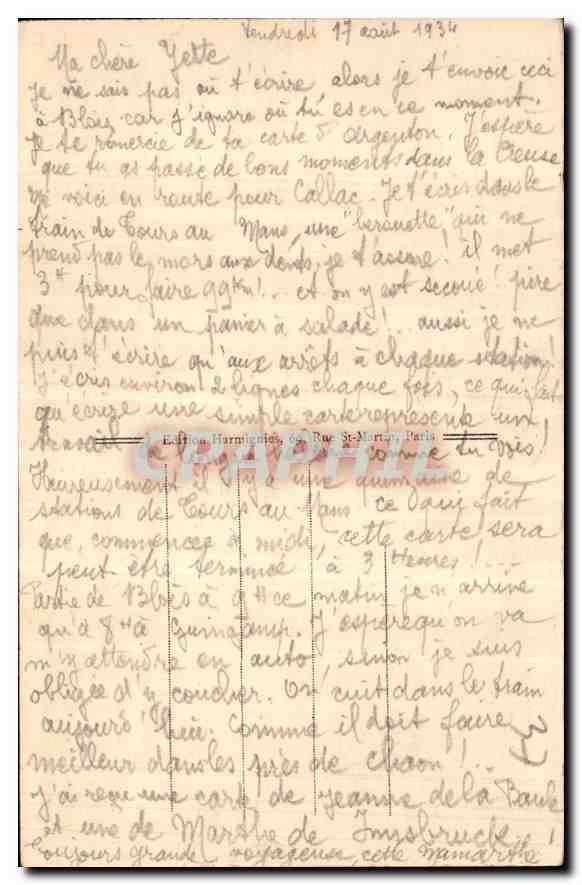 Vendredi 17 août 1934
Ma chère Yette
Je ne sais pas où t'écrire, alors je t'envoie ceci
à Blois car j'ignore où tu es en ce moment.
Je te remercie de ta carte d'Argenton. J'espère
que tu as passé de bons moments dans la Creuse
Me voici en route pour Callac. Je t'écris dans le
train de Tours au Mans, une "berouette" qui ne
prend pas le mors aux dents, je t'assure! il met
3H pour faire 99km!.. et on y est secoué! pire
que dans un panier à salade!.. aussi je ne
puis t'écrire qu'aux arrêts à chaque station!
J'écris environ 2 lignes chaque fois, ce qui fait
qu'écrire une simple carte représente un
travail
Edition Harmignies, 69, Rue St-Martin, Paris
comme tu vois!
CPAPHIL
Heureusement il y a une quinzaine de
stations de Tours au Mans ce qui fait
que, commencée à midi, cette carte sera
peut être terminée à 3 Heures!...
Partie de Blois à 9H ce matin je n'arrive
qu'à 8H à Guingamp. J'espère qu'on va
m'y attendre en auto sinon je suis
obligée d'y coucher. On cuit dans le train
aujourd'hui. Comme il doit faire
meilleur dans les près de chaon!..
J'ai reçu une carte de Jeanne de la Baule
et une de Marthe de Innsbruck.
Toujours grande voyageuse, cette Mamarthe!